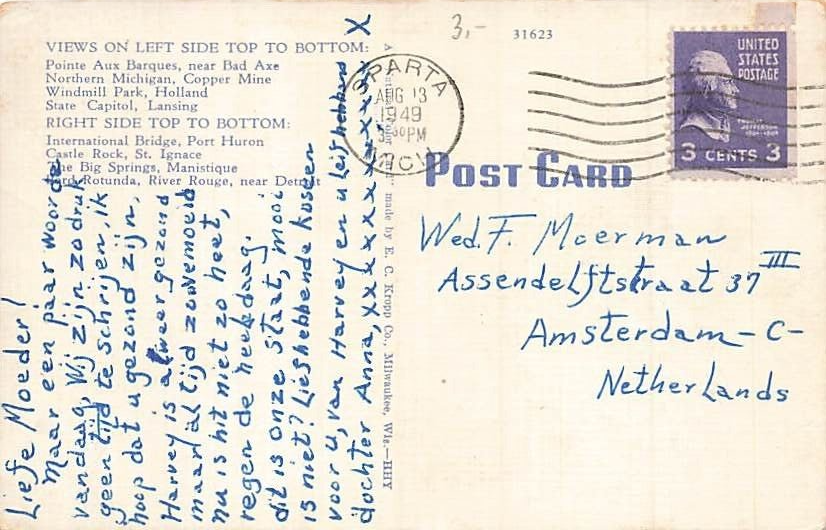 3,-
31623
VIEWS ON LEFT SIDE TOP TO BOTTOM:
Pointe Aux Barques, near Bad Axe
Northern Michigan, Copper Mine
Windmill Park, Holland
State Capitol, Lansing
RIGHT SIDE TOP TO BOTTOM:
International Bridge, Port Huron
Castle Rock, St. Ignace
The Big Springs, Manistique
Ford Rotunda, River Rouge, near Detroit
SPARTA
AUG 13
1949
30PM
MICH
UNITED
STATES
POSTAGE
3 CENTS 3
POST CARD
made by E. C. Kropp Co., Milwaukee, Wis.—HHY
Wed. F. Moerman
Assendelftstraat 37 III
Amsterdam - C -
Netherlands
Liefe Moeder!
Maar een paar woorde
vandaag, Wij zijn zo druk
geen tijd te schrijen, ik
hoop dat u gezond zijn,
Harvey is alweer gezond
maar al tijd zo vermoeid
nu is hit niet zo heet,
regen de heele daag.
dit is onze Staat, mooi
is niet? Liefhebbende kussen
voor u, van Harvey en u Liefhebben
dochter Anna, xxxxxxxxxxxxx X